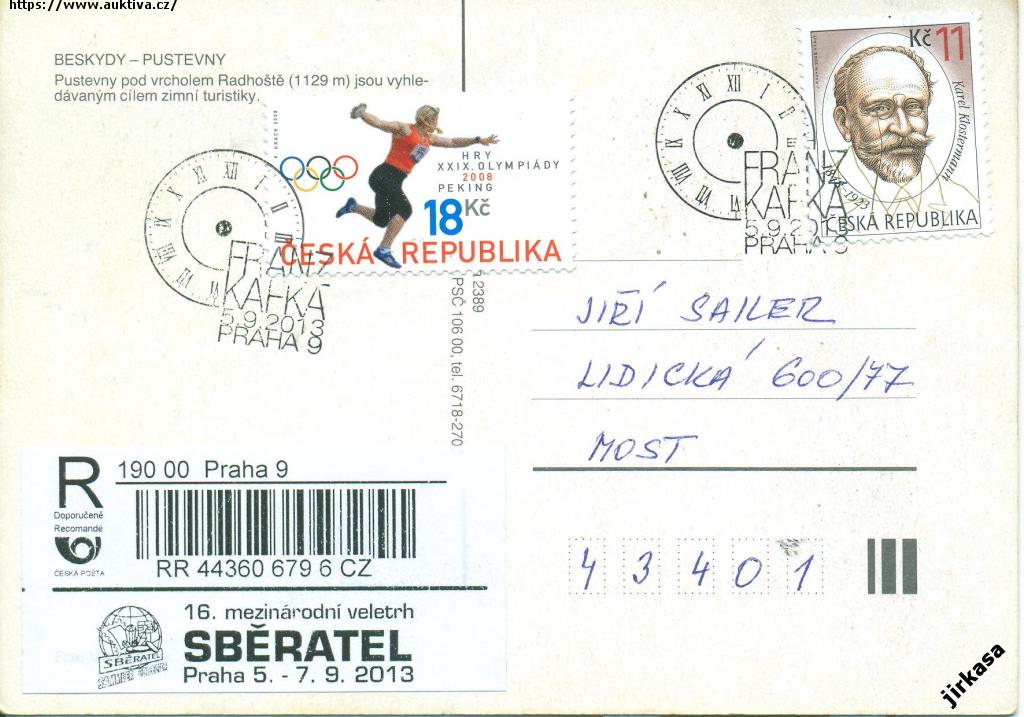 https://www.auktiva.cz/
BESKYDY – PUSTEVNY
Pustevny pod vrcholem Radhoště (1129 m) jsou vyhle-
dávaným cílem zimní turistiky.
HRY
XXIX. OLYMPIÁDY
2008
PEKING
18 Kč
ČESKÁ REPUBLIKA
Kč 11
Karel Klostermann
1848–1923
ČESKÁ REPUBLIKA
FRANZ
KAFKA
5.9.2013
PRAHA 9
FRANZ
KAFKA
5.9.201
PRAHA 9
2389
PSČ 106 00, tel. 6718-270
JIŘÍ SAILER
LIDICKÁ 600/77
MOST
43401
R
Doporučeně
Recomandé
ČESKÁ POŠTA
190 00 Praha 9
RR 44360 679 6 CZ
SBĚRATEL
16. mezinárodní veletrh
SBĚRATEL
Praha 5. - 7. 9. 2013
jirkasa